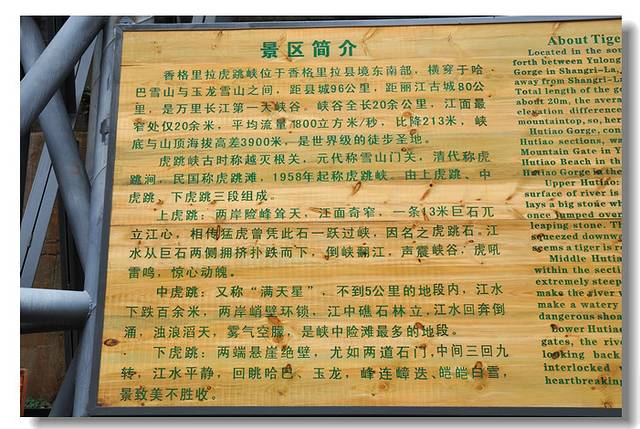 景区简介
香格里拉虎跳峡位于香格里拉县境东南部，横穿于哈
巴雪山与玉龙雪山之间，距县城96公里，距丽江古城80公
里，是万里长江第一大峡谷。峡谷全长20余公里，江面最
窄处仅20余米，平均流量1800立方米/秒，比降213米，峡
底与山顶海拔高差3900米，是世界级的徒步圣地。
虎跳峡古时称越灭根关，元代称雪山门关，清代称虎
跳涧，民国称虎跳滩，1958年起称虎跳峡，由上虎跳、中
虎跳、下虎跳三段组成。
上虎跳：两岸险峰耸天，江面奇窄，一条13米巨石兀
立江心，相传猛虎曾凭此石一跃过峡，因名之虎跳石。江
水从巨石两侧拥挤扑跌而下，倒峡翻江，声震峡谷，虎吼
雷鸣，惊心动魄。
中虎跳：又称“满天星”，不到5公里的地段内，江水
下跌百余米，两岸峭壁环锁，江中礁石林立，江水回奔倒
涌，浊浪滔天，雾气空朦，是峡中险滩最多的地段。
下虎跳：两端悬崖绝壁，尤如两道石门，中间三回九
转，江水平静，回眺哈巴、玉龙，峰连嶂迭、皑皑白雪，
景致美不胜收。
About Tige
Located in the sou
forth between Yulong
Gorge in Shangri-La,
away from Shangri-L
Total length of the g
about 20m, the avera
elevation difference
mountaintop, so, her
Hutiao Gorge, con
Hutiao sections, w
Mountain Gate in Y
Hutiao Beach in th
Hutiao Gorge in the
Upper Hutiao:
surface of river is
lays a big stone wh
once jumped over
leaping stone. Th
squeezed downw
seems a tiger is r
Middle Hutia
within the secti
extremely steep
make the river
make a watery
dangerous shoa
Lower Hutiao
gates, the rive
looking back
interlocked
heartbreaking